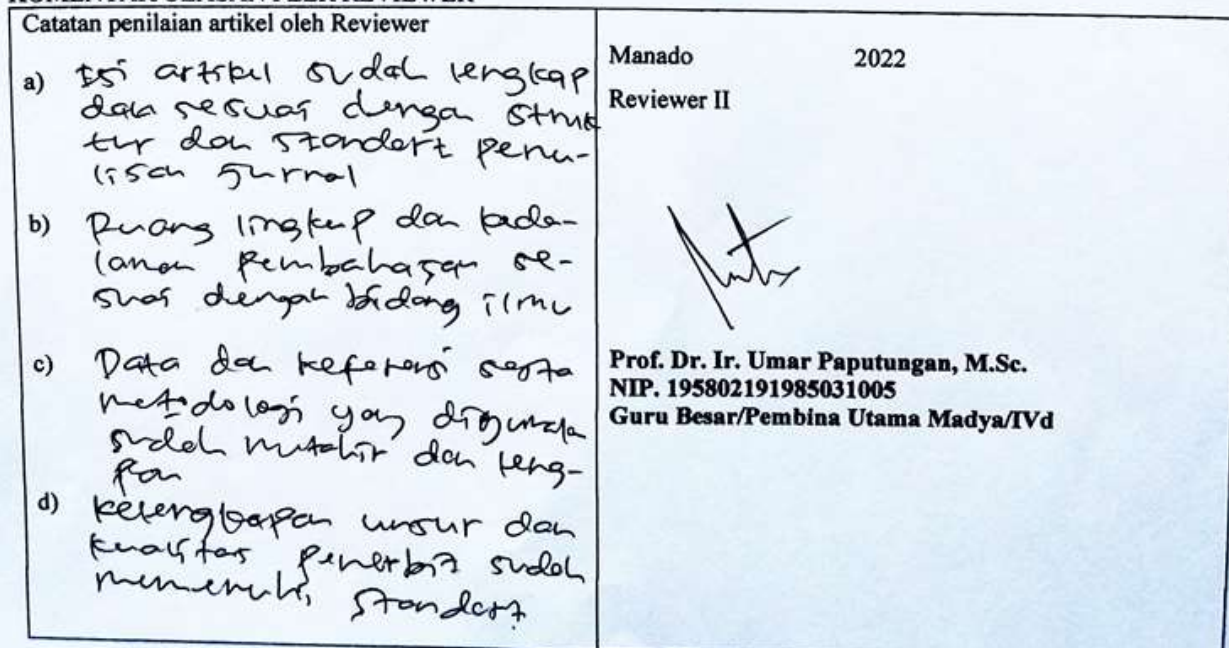 Catatan penilaian artikel oleh Reviewer
a) Isi artikel sudah lengkap
dan sesuai dengan struk
tur dan standart penu-
lisan jurnal
b) Ruang lingkup dan keda-
laman pembahasan se-
suai dengan bidang ilmu
c) Data dan referensi serta
metodologi yang digunaka
sudah mutahir dan leng-
d) kelengkapan unsur dan
kualitas penerbit sudah
memenuhi standart
Manado 2022
Reviewer II
Prof. Dr. Ir. Umar Paputungan, M.Sc.
NIP. 195802191985031005
Guru Besar/Pembina Utama Madya/IVd